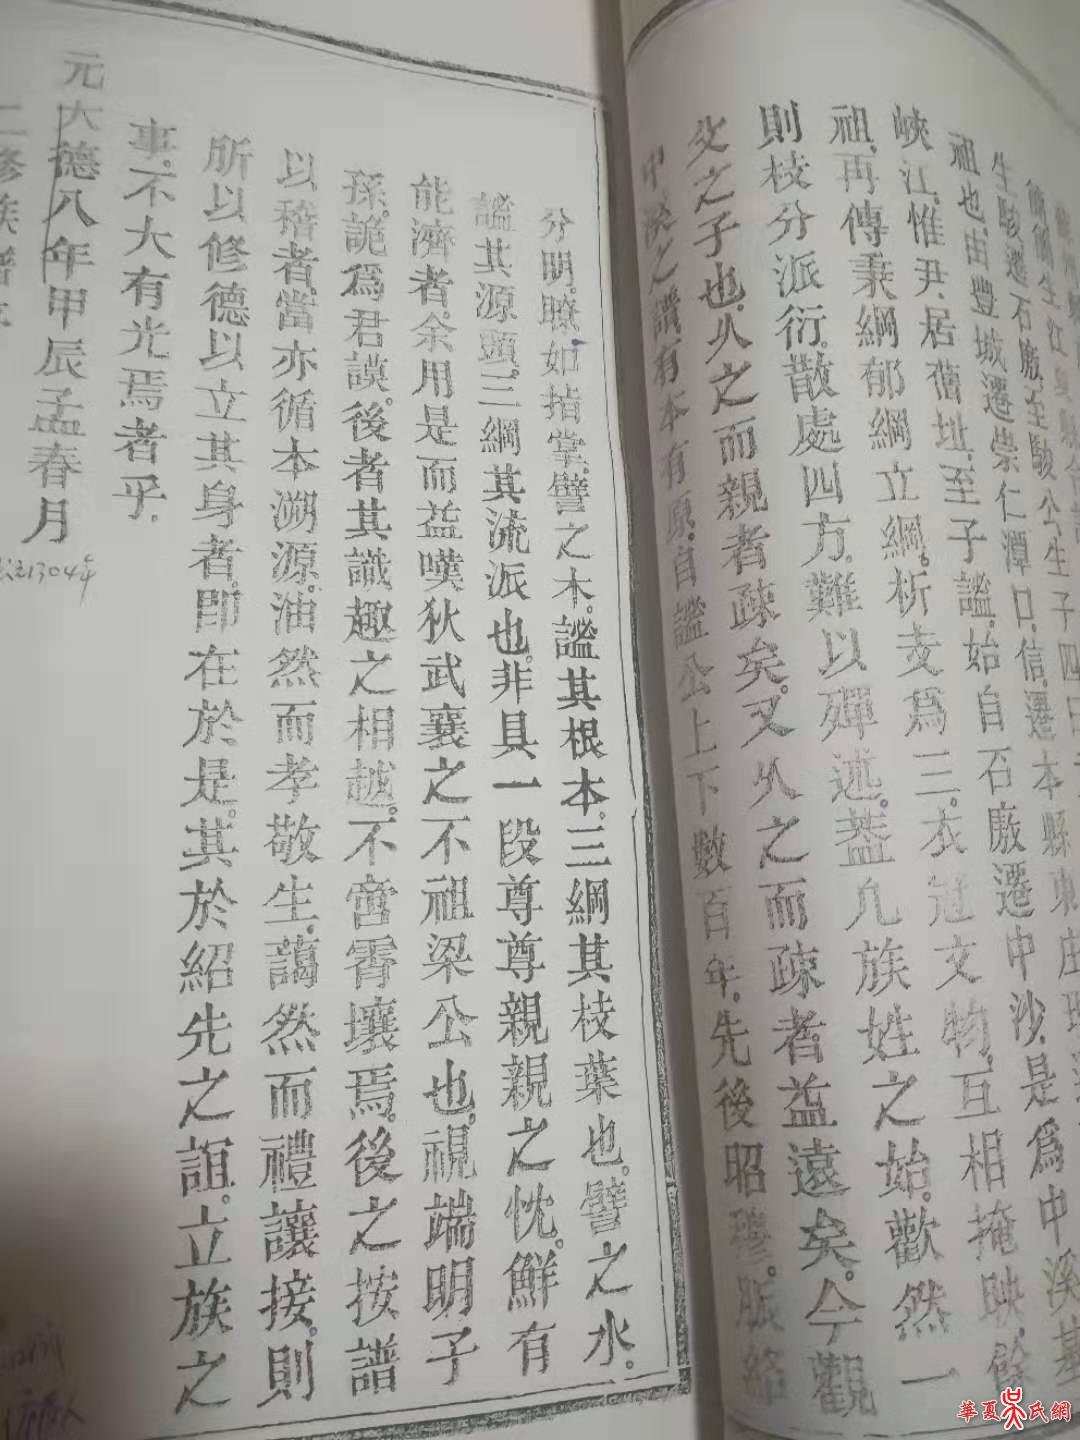 生駿遷石廒至駿公生子四曰
祖也由豐城遷崇仁潭口信遷本縣東庄
峽江惟尹居舊址至子謐始自石廒遷中沙是爲中溪基
祖再傳秉綱郁綱立綱析支爲三衣冠文物互相掩映餘
則枝分派衍散處四方難以殫述葢凡族姓之始歡然一
父之子也乆之而親者疎矣又乆之而疎者益遠矣今觀
中溪之譜有本有原自謐公上下數百年先後昭穆脈絡
分明瞭如指掌譬之木謐其根本三綱其枝葉也譬之水
謐其源頭三綱其流派也非具一段尊尊親親之忱鮮有
能濟者余用是而益嘆狄武襄之不祖梁公也視端明子
孫詭爲君謨後者其識趣之相越不啻霄壤焉後之按譜
以稽者當亦循本溯源油然而孝敬生藹然而禮讓接則
所以修德以立其身者卽在於是其於紹先之誼立族之
事不大有光焉者乎
元大德八年甲辰孟春月
1304年
二修族譜
華夏吳氏網